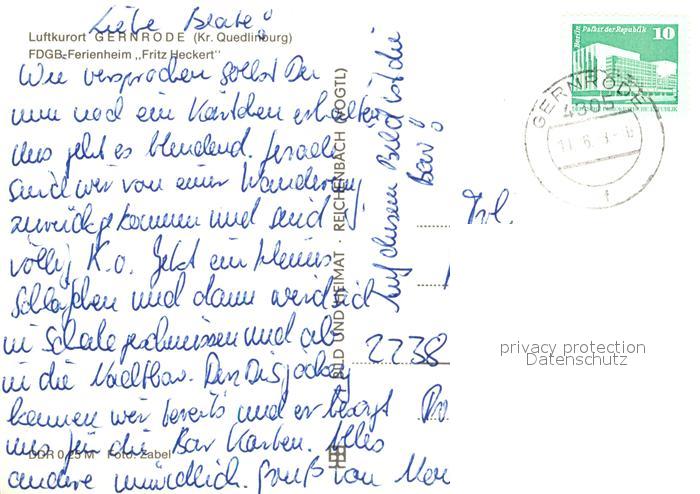 Liebe Beate!
Luftkurort GERNRODE (Kr. Quedlinburg)
FDGB-Ferienheim „Fritz Heckert"
Wie versprochen sollst Du
nun noch ein Kärtchen erhalten
Uns geht es blendend. Gerade
sind wir von einer Wanderung
zurückgekommen und sind
völlig K.o. Jetzt ein kleines
Schläfchen und dann wird sich
in Schale geschmissen und ab
in die Nachtbar. Den Discjockey
kennen wir bereits und er besorgt
uns für die Bar Karten. Alles
andere mündlich. Gruß von
DDR 0,25 M Foto: Zabel
BILD UND HEIMAT · REICHENBACH (VOGTL)
Auf diesem Bild ist die
Bar!
Berlin Palast der Republik
10
GERNRODE
4305
Frl.
2238
privacy protection
Datenschutz